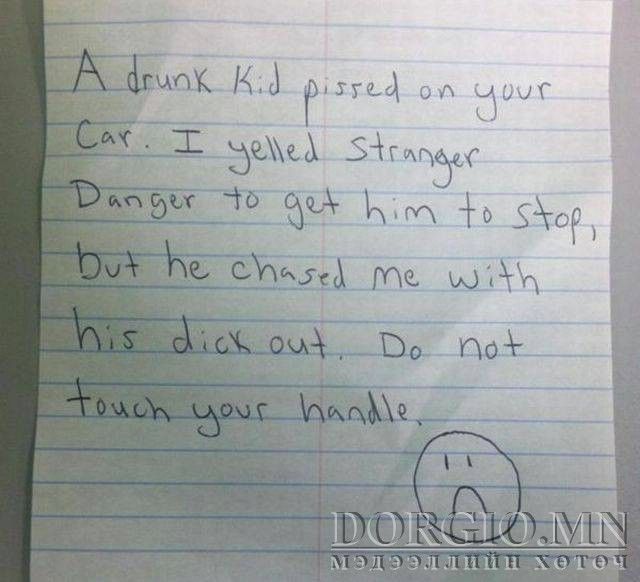 A drunk kid pissed on your
Car. I yelled Stranger
Danger to get him to stop,
but he chased me with
his dick out. Do not
touch your handle.
DORGIO.MN
МЭДЭЭЛЛИЙН ХӨТӨЧ